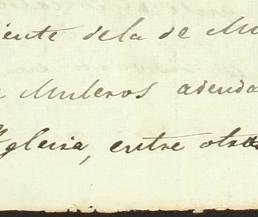 iente dela de Mu
Muleros adenda
Yglesia, entre otras